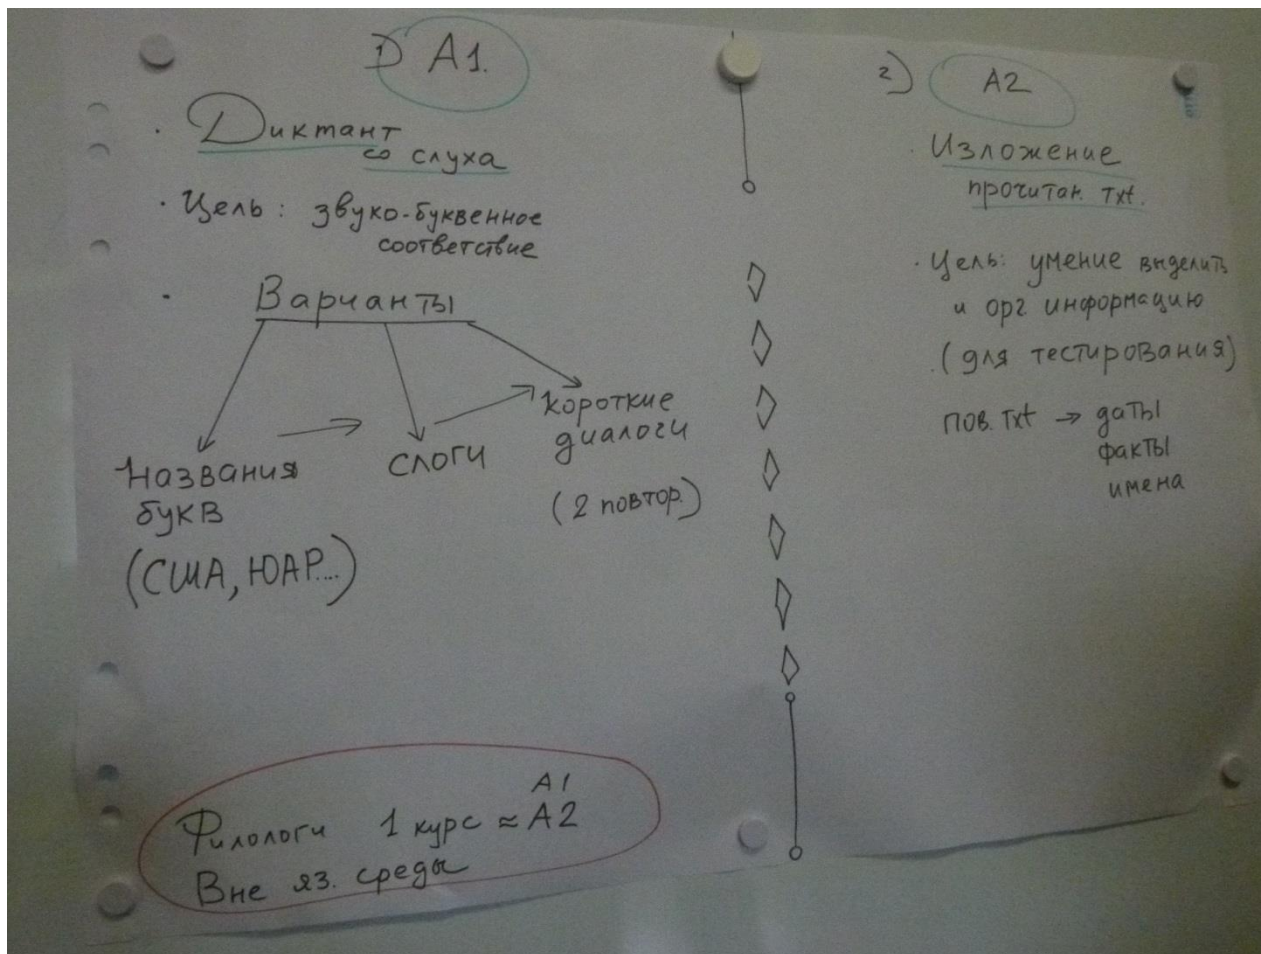 1) А1.
· Диктант
со слуха
· Цель: звуко-буквенное
соответствие
· Варианты
Названия
букв
(США, ЮАР...)
слоги
короткие
диалоги
(2 повтор.)
Филологи 1 курс ≈ А2
А1
Вне яз. среды
2) А2
· Изложение
прочитан. txt.
· Цель: умение выделить
и орг информацию
(для тестирования)
пов. txt → даты
факты
имена